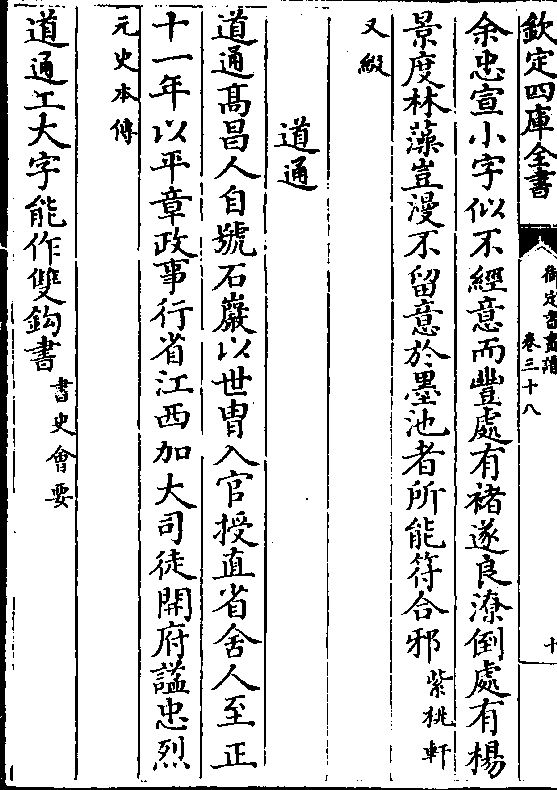 欽定四庫全書
御定書畫譜
卷三十八
十
余忠宣小字似不經意而豐處有褚遂良潦倒處有楊
景度林藻豈漫不留意於墨池者所能符合邪紫桃軒
又綴
道通
道通髙昌人自號石巖以世胄入官授直省舍人至正
十一年以平章政事行省江西加大司徒開府謚忠烈
元史本傳
道通工大字能作雙鈎書書史會要